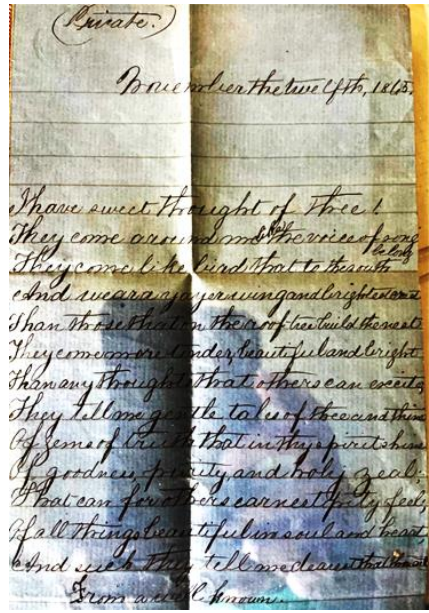 (Private.)
November the twelfth, 1865,
I have sweet thought of thee!
They come around me like the voice of song
They come like bird that to the south belong
And wear a gayer wing and brighter crest
Than those that on the roof tree build the nest
They come more tender, beautiful and bright,
Than any thoughts that others can excite,
They tell me gentle tales of thee and thine
Of gems of truth that in thy spirit shine
Of goodness, purity, and holy zeal;
That can for others earnest pity feel;
Of all things beautiful in soul and heart,
And such they tell me dearest that thou art
From a well known